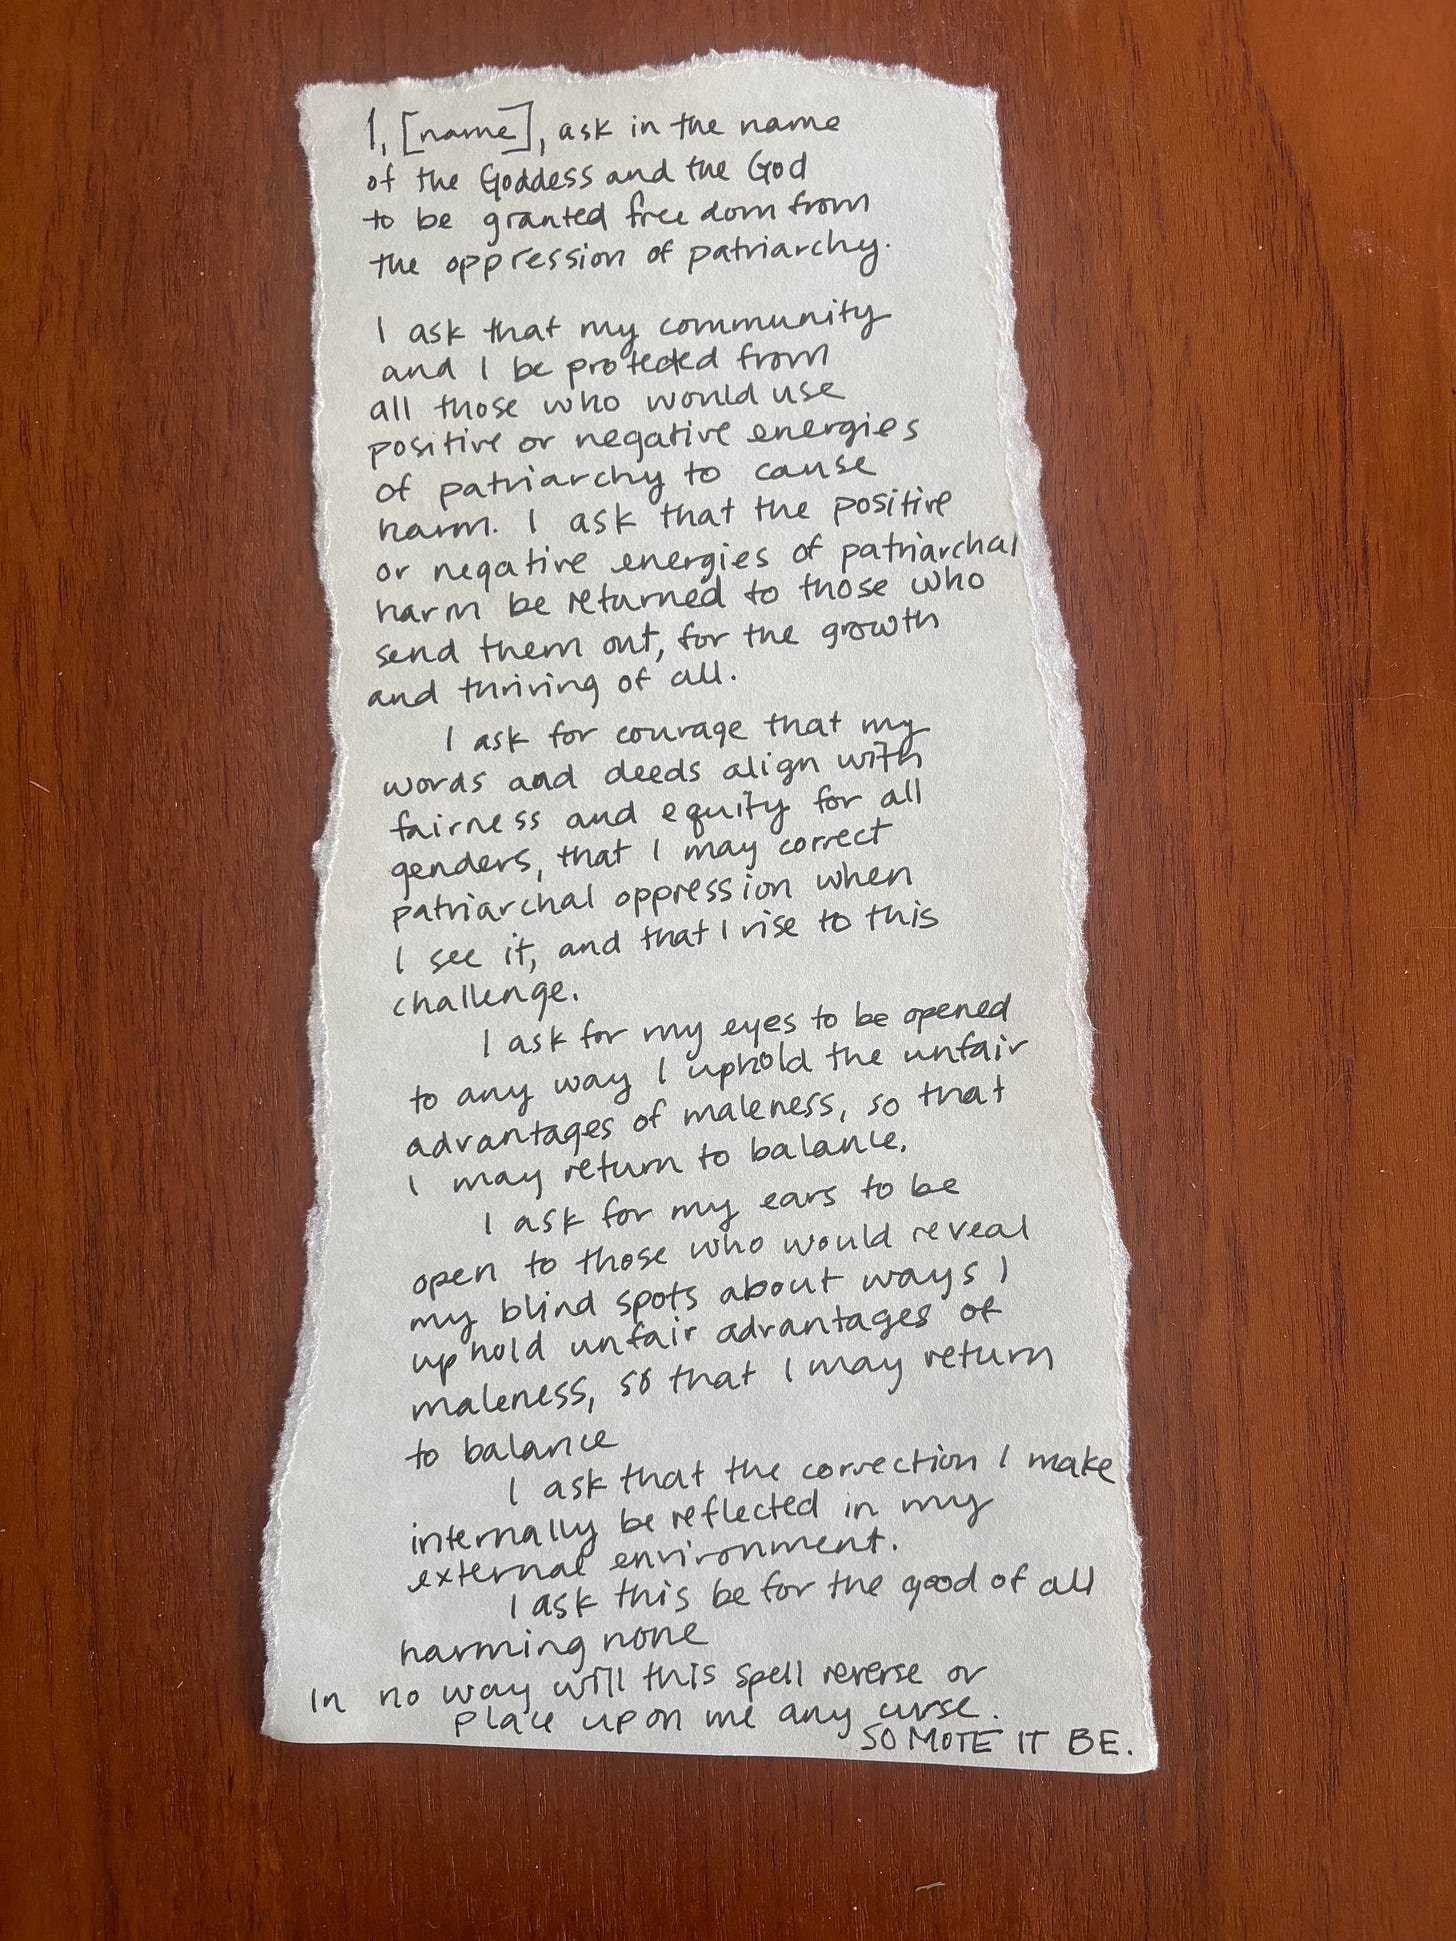 I, [name], ask in the name
of the Goddess and the God
to be granted freedom from
the oppression of patriarchy.
I ask that my community
and I be protected from
all those who would use
positive or negative energies
of patriarchy to cause
harm. I ask that the positive
or negative energies of patriarchal
harm be returned to those who
send them out, for the growth
and thriving of all.
I ask for courage that my
words and deeds align with
fairness and equity for all
genders, that I may correct
patriarchal oppression when
I see it, and that I rise to this
challenge.
I ask for my eyes to be opened
to any way I uphold the unfair
advantages of maleness, so that
I may return to balance.
I ask for my ears to be
open to those who would reveal
my blind spots about ways I
uphold unfair advantages of
maleness, so that I may return
to balance
I ask that the correction I make
internally be reflected in my
external environment.
I ask this be for the good of all
harming none
In no way will this spell reverse or
place upon me any curse.
SO MOTE IT BE.